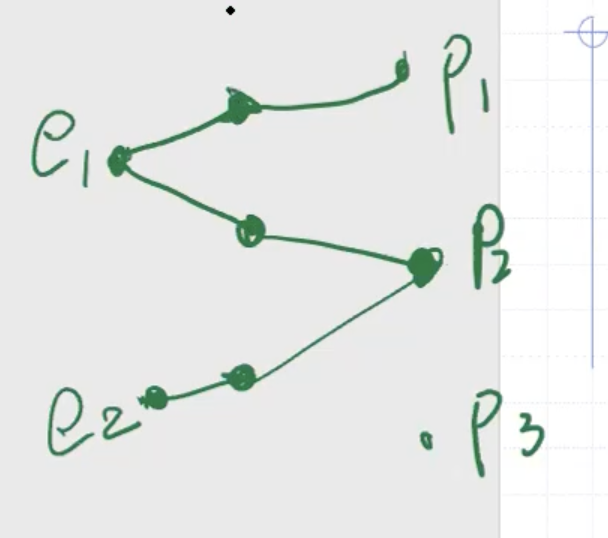 P1
e1
P2
e2
P3